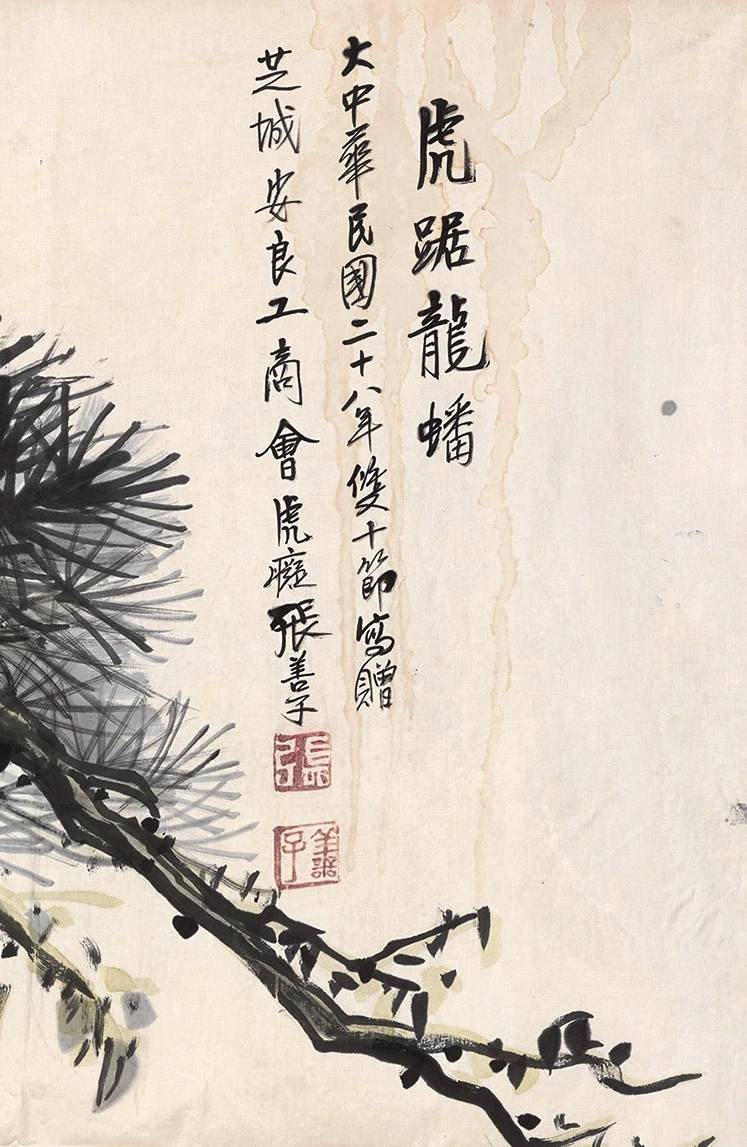 虎踞龍蟠
大中華民國二十八年雙十節寫贈
芝城安良工商會虎癡張善子
張
善子